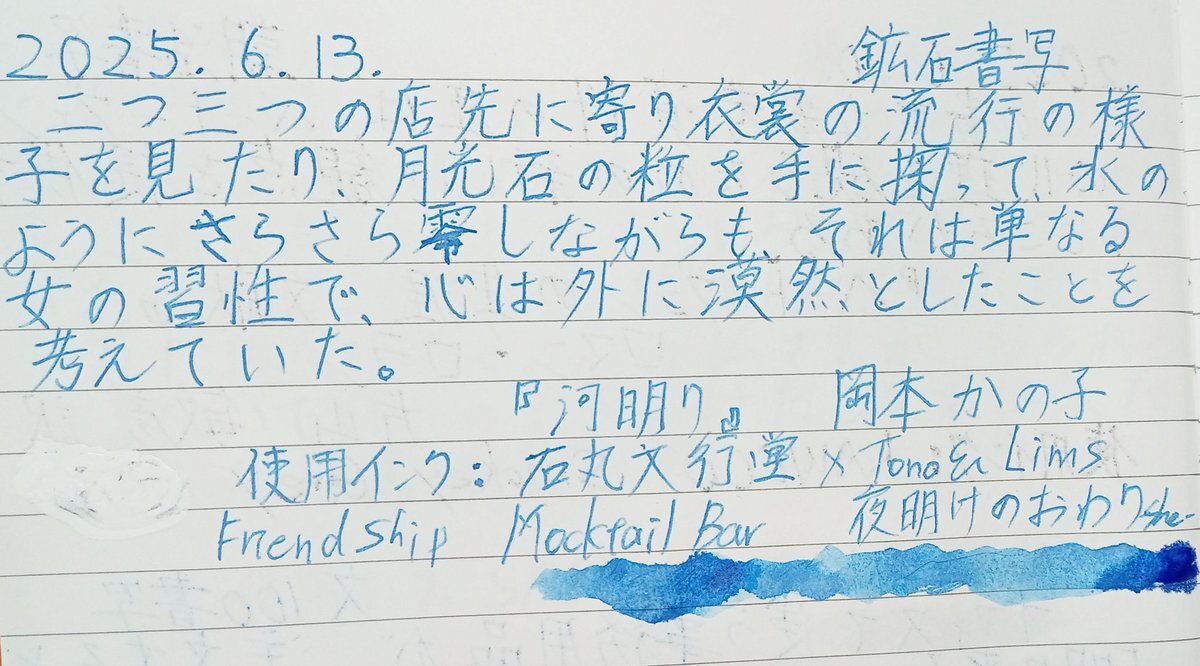 2025.6.13. 鉱石書写
二つ三つの店先に寄り衣裳の流行の様
子を見たり、月光石の粒を手に掬って、水の
ようにさらさら零しながらも、それは単なる
女の習性で、心は外に漠然としたことを
考えていた。
『河明り』 岡本かの子
使用インク:石丸文行堂×Tono&Lims
Friendship Mocktail Bar 夜明けのおわり